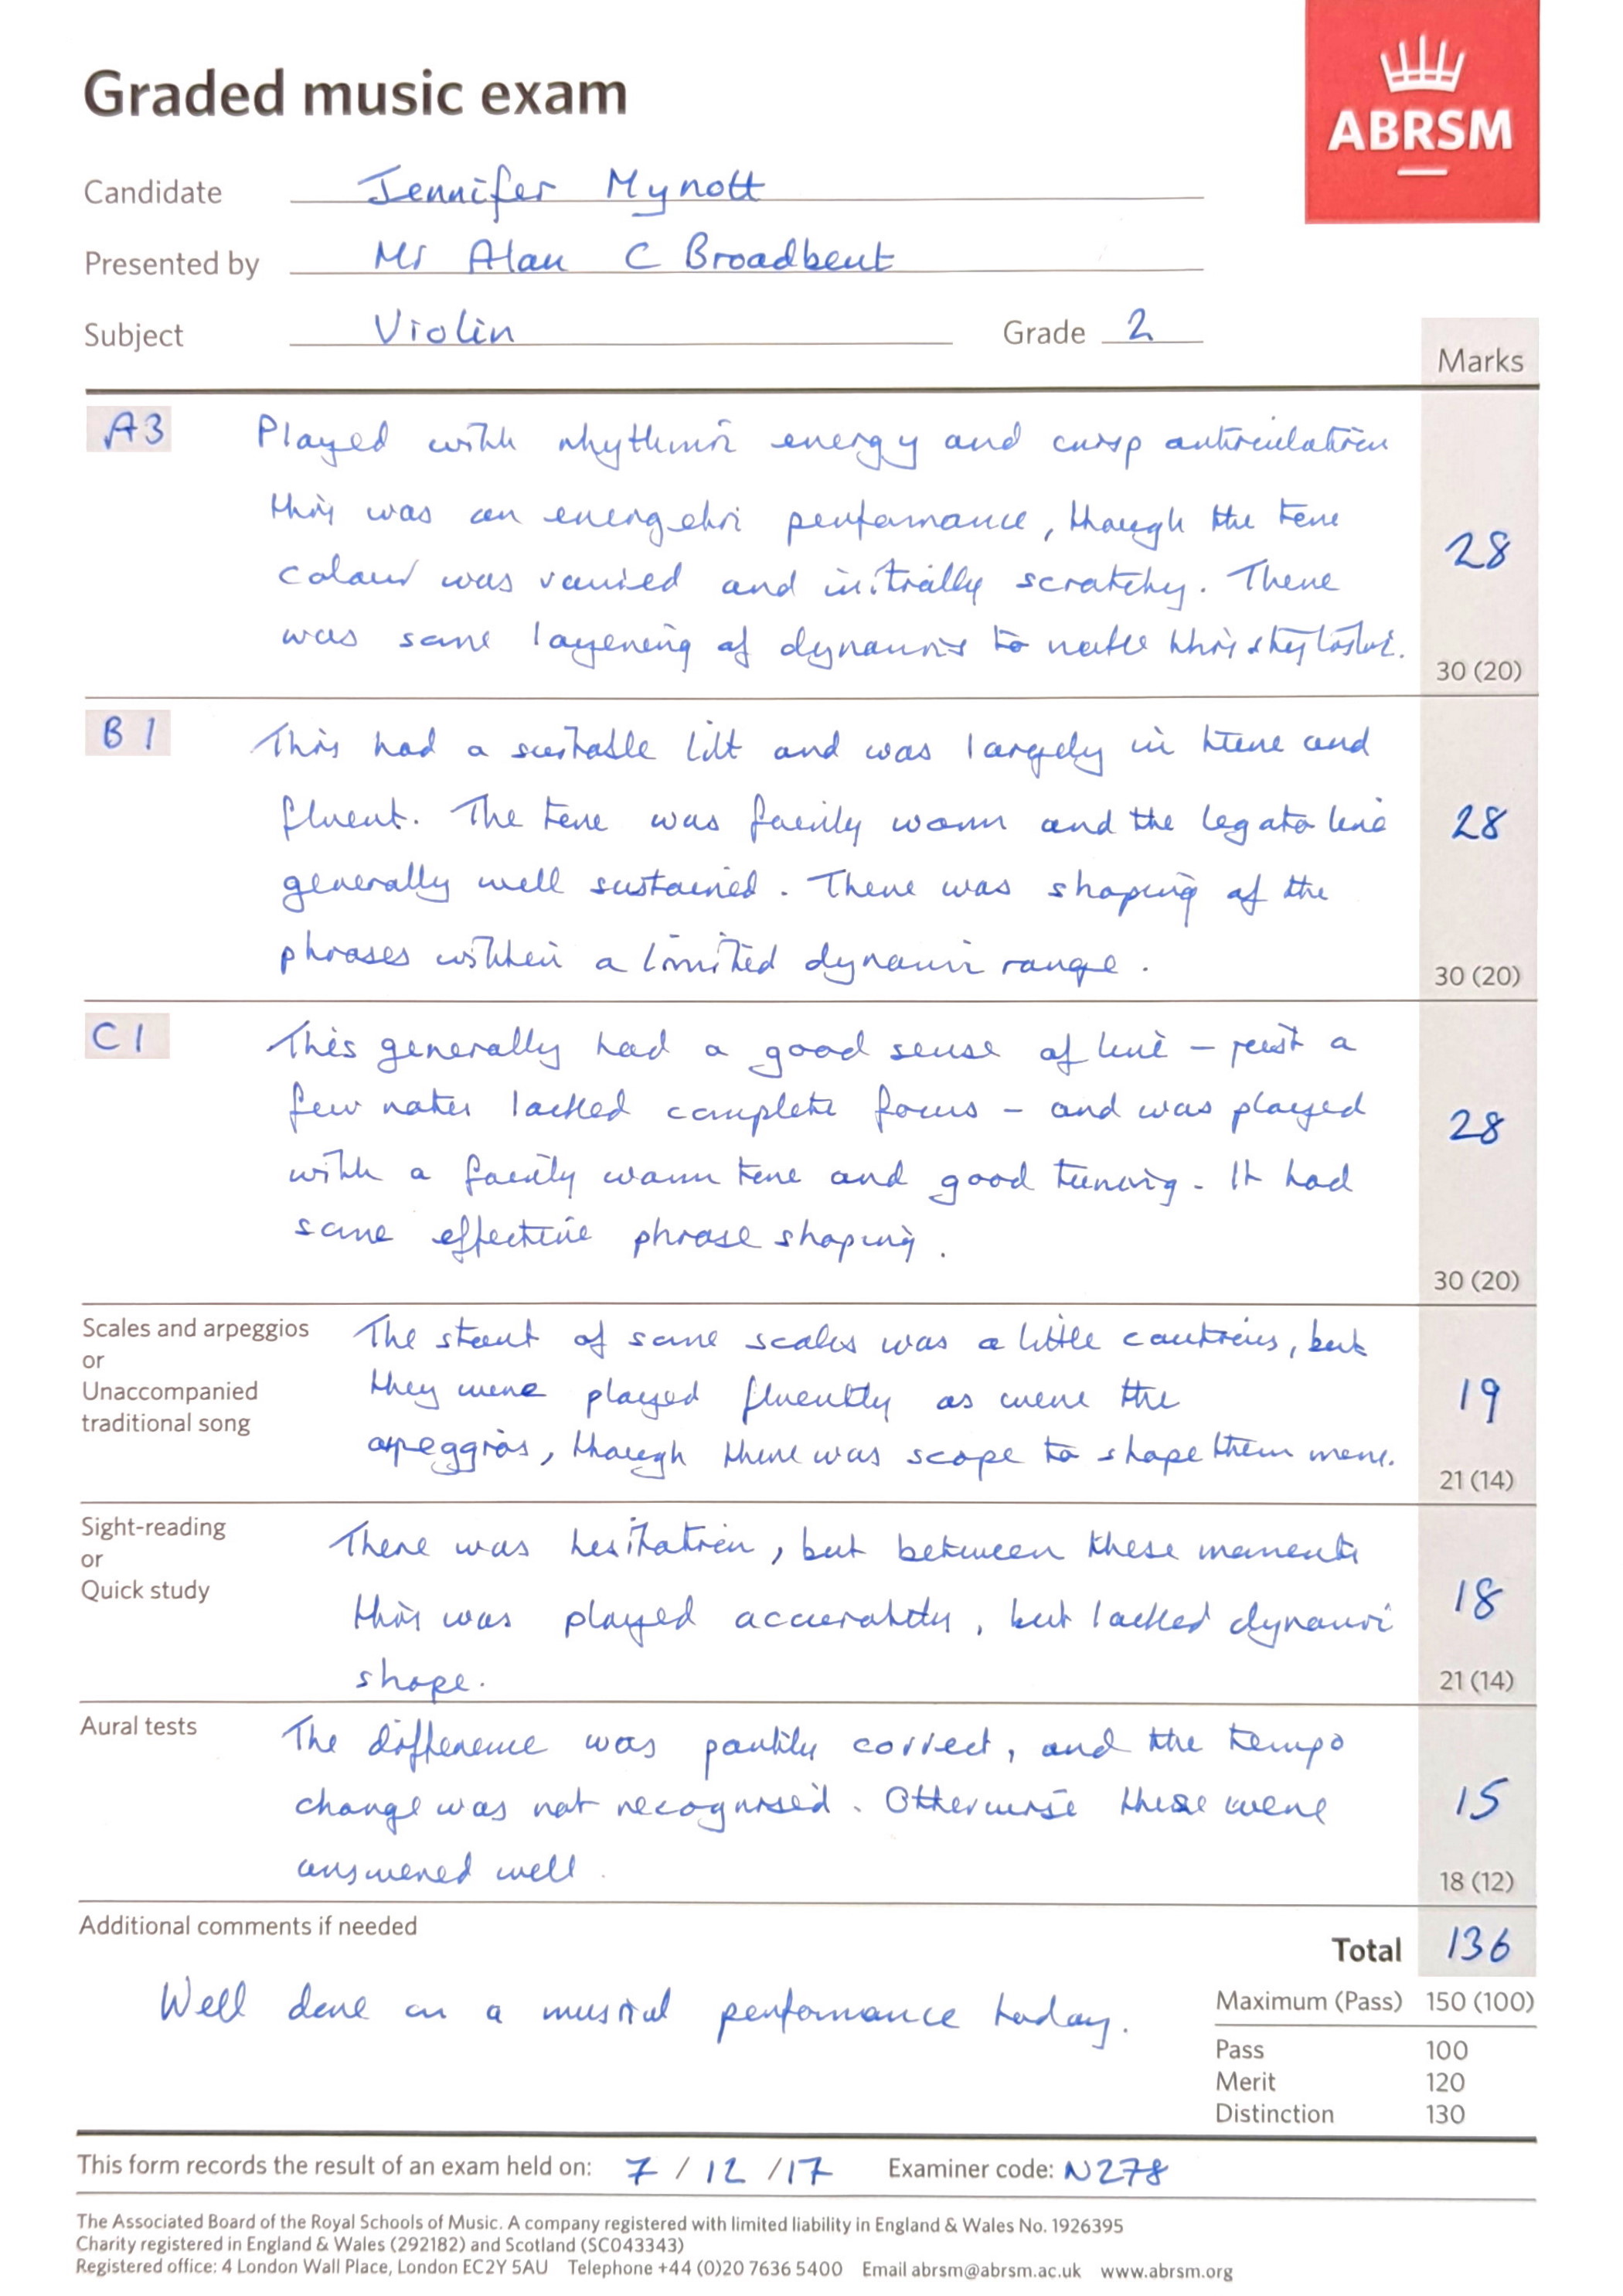 Graded music exam
ABRSM
Candidate Jennifer Mynott
Presented by Mr Alan C Broadbent
Subject Violin Grade 2
Marks
A3 Played with rhythmic energy and crisp articulation
this was an energetic performance, though the tone
colour was varied and initially scratchy. There
was some layering of dynamics to make this stylistic.
28
30 (20)
B1 This had a suitable lilt and was largely in tune and
fluent. The tone was fairly warm and the legato line
generally well sustained. There was shaping of the
phrases within a limited dynamic range.
28
30 (20)
C1 This generally had a good sense of line - just a
few notes lacked complete focus - and was played
with a fairly warm tone and good tuning. It had
some effective phrase shaping.
28
30 (20)
Scales and arpeggios
or
Unaccompanied
traditional song
The start of some scales was a little cautious, but
they were played fluently as were the
arpeggios, though there was scope to shape them more.
19
21 (14)
Sight-reading
or
Quick study
There was hesitation, but between these moments
this was played accurately, but lacked dynamic
shape.
18
21 (14)
Aural tests
The difference was partily correct, and the tempo
change was not recognised. Otherwise these were
answered well.
15
18 (12)
Additional comments if needed
Well done on a musical performance today.
Total 136
Maximum (Pass) 150 (100)
Pass 100
Merit 120
Distinction 130
This form records the result of an exam held on: 7 / 12 / 17 Examiner code: N278
The Associated Board of the Royal Schools of Music. A company registered with limited liability in England & Wales No. 1926395
Charity registered in England & Wales (292182) and Scotland (SC043343)
Registered office: 4 London Wall Place, London EC2Y 5AU Telephone +44 (0)20 7636 5400 Email abrsm@abrsm.ac.uk www.abrsm.org